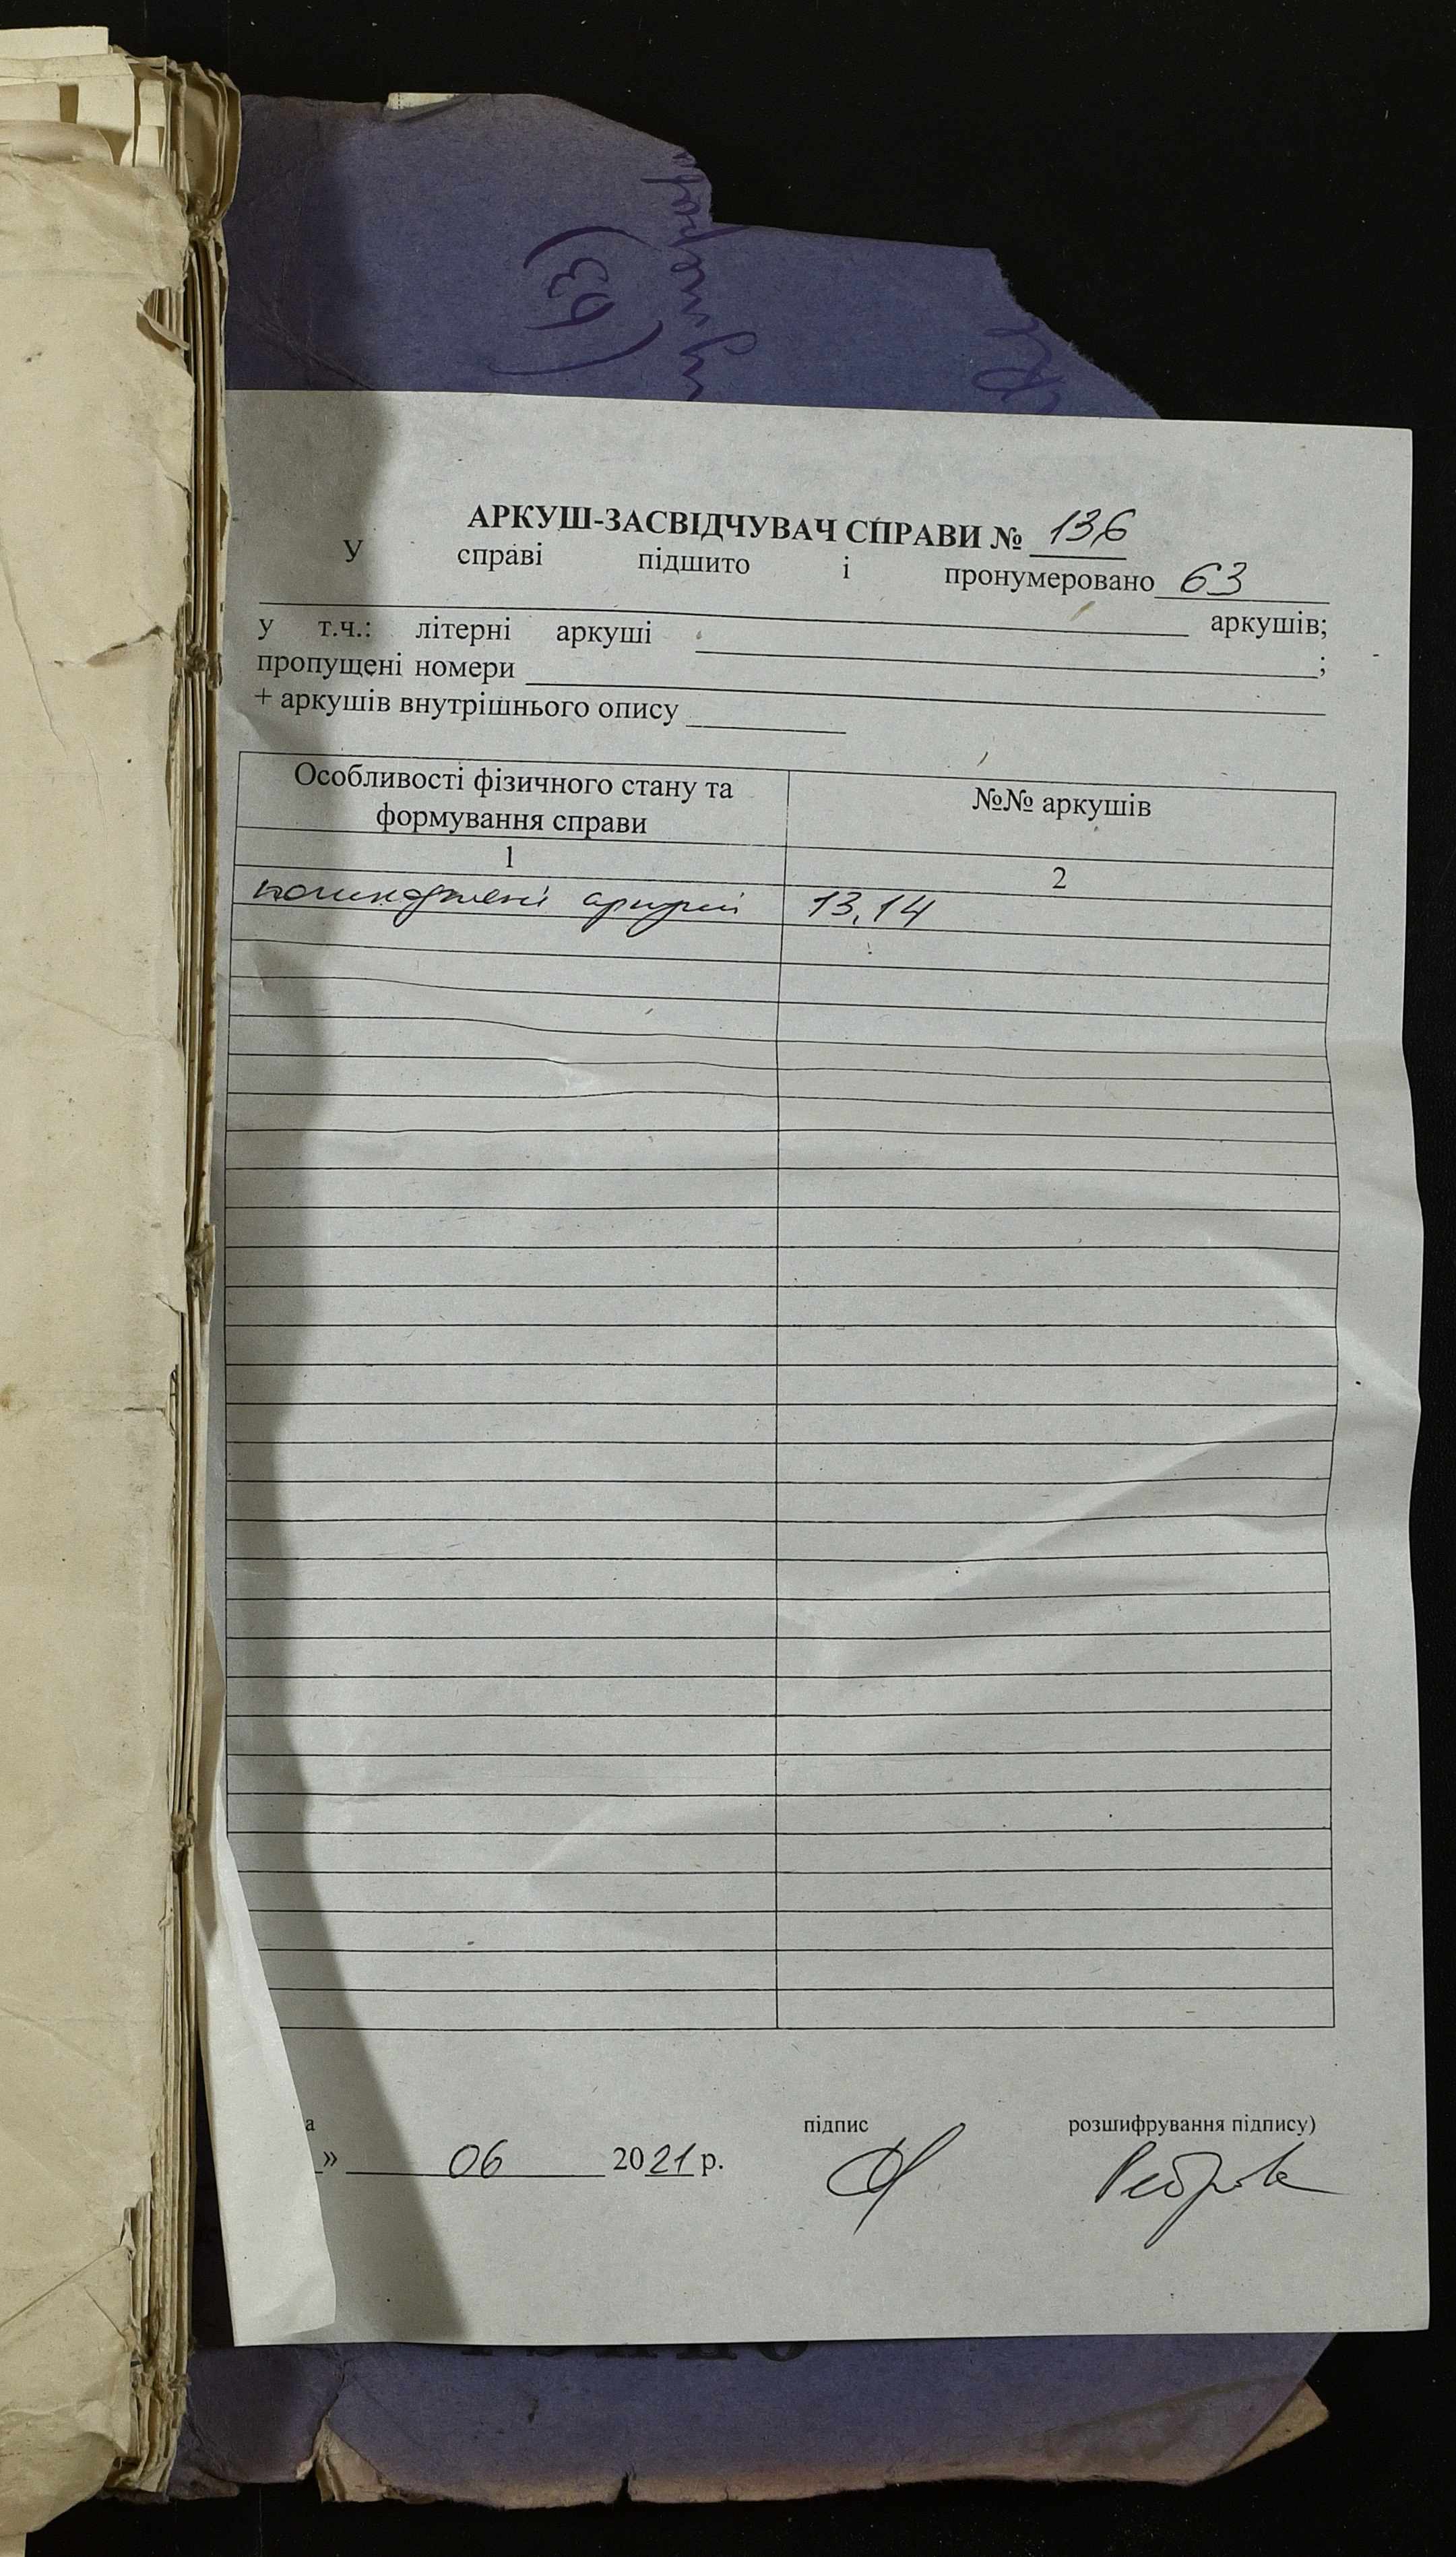 (63)
АРКУШ-ЗАСВІДЧУВАЧ СПРАВИ № 136
У справі підшито і пронумеровано 63
аркушів;
у т.ч.: літерні аркуші ;
пропущені номери
+ аркушів внутрішнього опису
Особливості фізичного стану та формування справи
№№ аркушів
1
2
пошкоджені аркуші 13,14
а
підпис
розшифрування підпису)
» 06 2021 р.